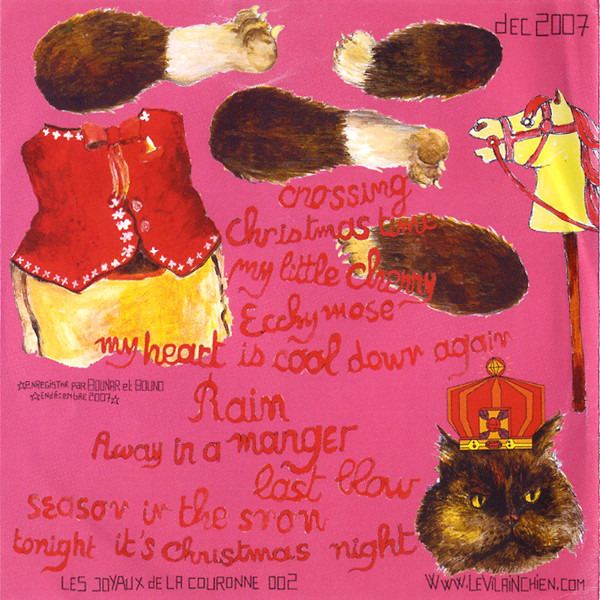 DEC 2007
crossing
Christmas time
my little Chonny
Ecchymose
my heart is cool down again
☆ENREGISTRÉ PAR BOUNAR et BOUNO
☆EN DÉCEMBRE 2007☆
Rain
Away in a manger
last blow
season in the snon
tonight it's Christmas night
LES JOYAUX de LA COURONNE 002
WWW.LEVILAINCHIEN.COM